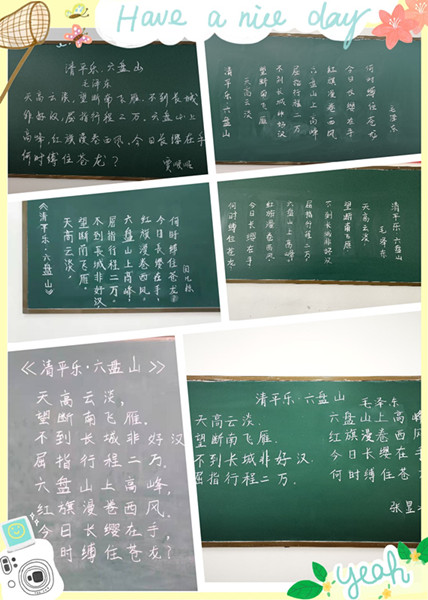 Have a nice day
清平乐·六盘山
毛泽东
天高云淡,望断南飞雁.不到长城
非好汉,屈指行程二万.六盘山上
高峰,红旗漫卷西风.今日长缨在手
何时缚住苍龙?
清平乐 六盘山
天高云淡
望断南飞雁
不到长城非好汉
屈指行程二万
六盘山上高峰
红旗漫卷西风
今日长缨在手
何时缚住苍龙
《清平乐·六盘山》
天高云淡,
望断南飞雁。
不到长城非好汉,
屈指行程二万。
六盘山上高峰,
红旗漫卷西风。
今日长缨在手,
何时缚住苍龙
清平乐·六盘山
毛泽东
天高云淡
望断南飞雁
不到长城非好汉
屈指行程二万
六盘山上高峰
红旗漫卷西风
今日长缨在手
何时缚住苍龙
《清平乐·六盘山》
天高云淡,
望断南飞雁.
不到长城非好汉
屈指行程二万.
六盘山上高峰,
红旗漫卷西风.
今日长缨在手,
时缚住苍龙?
清平乐·六盘山
毛泽东
天高云淡.
望断南飞雁.
不到长城非好汉.
屈指行程二万.
六盘山上高峰
红旗漫卷西风
今日长缨在手
何时缚住苍
张昱
yeah